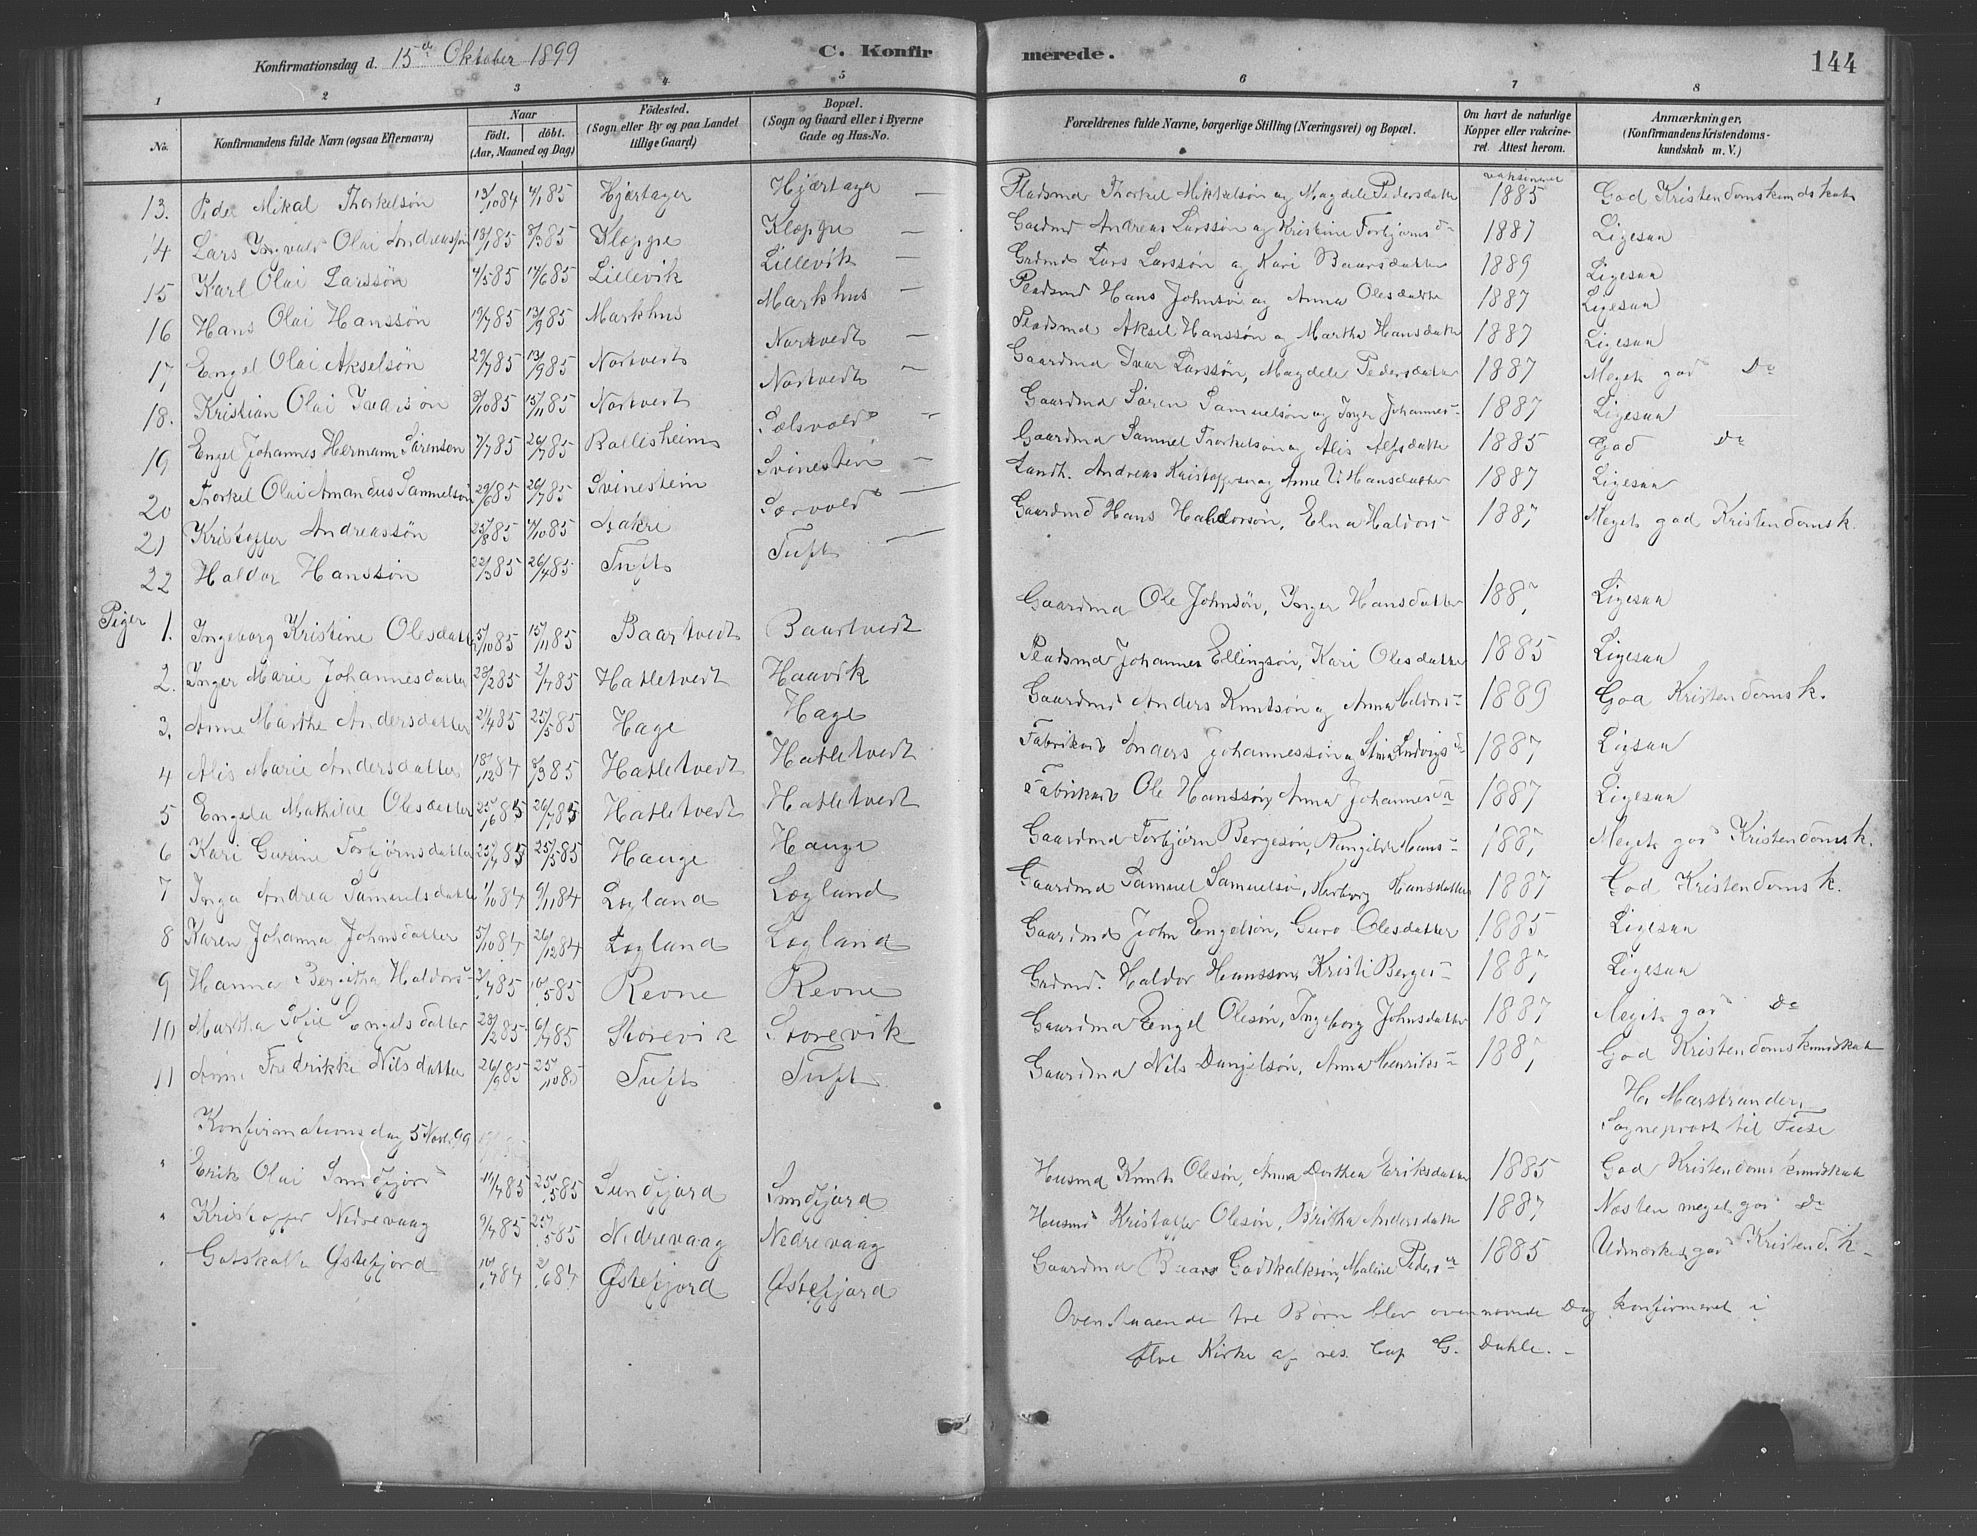 Konfirmationsdag d. 15de Oktober 1899 C. Konfirmerede. 144
1 2 3 4 5 6 7 8
No. Konfirmandens fulde Navn (ogsaa Efternavn) Naar født. døbt. (Aar, Maaned og Dag) Fødested. (Sogn eller By og paa Landet tillige Gaard) Bopæl. (Sogn og Gaard eller i Byerne Gade og Hus-No. Forældrenes fulde Navne, borgerlige Stilling (Næringsvei) og Bopæl. Om havt de naturlige Kopper eller vakcineret. Attest herom. Anmærkninger, (Konfirmandens Kristendomskundskab m. V.)
13. Peder Mikal Thorkelsøn 13/10 84 4/1 85 Hjørtager Hjørtager — Pladsmd Thorkel Mikkelsøn og Magdele Pedersdatter 1885 God Kristendomskundskab
14 Lars Ingvald Olai Andreassøn 85 8/3 85 Klepgre Klepgre — Gaardmd Andreas Larssøn og Kristine Torbjørnsd 1887 Ligesaa
15 Karl Olai Larssøn 4/5 85 14/6 85 Lillevik Lillevik — Grdmd Lars Larssøn og Kari Baarsdatter 1889 Ligesaa
16 Hans Olai Hanssøn 19/7 85 13/9 85 Markhus Markhus — Pladsmd Hans Johnsøn og Anna Olesdatter 1887 Ligesaa
17, Engel Olai Akselsøn 29/7 85 13/9 85 Nortvedt Nortvedt — Pladsmd Aksel Hanssøn og Martha Hansdatter 1887 Ligesaa
18. Kristian Olai Ivarsøn 9/10 85 15/11 85 Nortvedt Nortvedt — Gaardmd Ivar Larssøn, Magdele Pedersdatter 1887 Meget god Do
19 Engel Johannes Hermann Sørenson 7/7 85 26/7 85 Ballesheim Sælsvold — Gaardmd Søren Samuelsøn og Inger Johannes- 1887 Ligesaa
20 Torkel Olai Amandus Samuelsøn 29/6 85 26/7 85 Svinestein Svinestein — Gaardmd Samuel Torkelsøn og Alis Alfsdatter 1885 God Do
21 Kristoffer Andreassøn 25/8 85 4/10 85 Aakre Særvold — Landh. Andreas Kristoffersen og Anne V. Hansdatter 1887 Ligesaa
22 Haldor Hanssøn 22/3 85 26/4 85 Tuft Tuft — Gaardmd Hans Haldorsøn, Elna Haldors- 1887 Meget god Kristendomsk.
Piger 1. Ingeborg Kristine Olesdatter 5/10 85 15/11 85 Baartvedt Baartvedt Gaardmd Ole Johnsøn, Inger Hansdatter 1887 Ligesaa
2. Inger Marie Johannesdatter 28/2 85 2/4 85 Hatletvedt Haavik Pladsmd Johannes Ellingsøn, Kari Olesdatter 1885 Ligesaa
3. Anne Marthe Andersdatter 21/4 85 25/5 85 Hage Hage Gaardmd Anders Knutsøn og Anna Haldors- 1889 God Kristendomsk.
4 Alis Marie Andersdatter 18/12 84 8/3 85 Hatletvedt Hatletvedt Fabrikarb Anders Johannessøn og Stina Ludvigsd 1887 Ligsaa
5 Engela Mathilde Olesdatter 25/6 85 26/7 85 Hatletvedt Hatletvedt Fabrikarb Ole Hanssøn, Anna Johannesd 1887 Ligesaa
6 Kari Gurine Torbjørnsdatter 25/4 85 25/5 85 Hauge Hauge Gaardmd Torbjørn Bergesøn, Hans- 1887 Meget god Kristendomsk.
7 Inga Andrea Samuelsdatter 1/10 84 9/11 84 Legland Legland Gaardmd Samuel Samuelsø, Herborg Hansdatter 1887 God Kristendomsk.
8 Karen Johanna Johnsdatter 5/10 84 26/12 84 Legland Legland Gaardmd John Engelsøn, Guro Olesdatter 1885 Ligesaa
9 Hanna Beritha Haldors- 3/4 85 10/5 85 Revne Revne Grdmd. Haldor Hanssøn, Kristi Berges- 1887 Ligesaa
10 Martha Sofie Engelsdatter 28/2 85 6/4 85 Storevik Storevik Gaardmd Engel Olesøn, Ingeborg Johnsdatter 1887 Meget god Do
11 Anne Fredrikke Nilsdatter 26/9 85 25/10 85 Tuft Tuft Gaardmd Nils Danjelsøn, Anna Henriks- 1887 God Kristendomskundskab
H. Marstrander,
Sogneprest til Fuse
Konfirmationsdag 5 Novb. 99
" Erik Olai Sundfjord 14/4 85 25/5 85 Sundfjord Sundfjord Husmd Knut Olesøn, Anna Dorthea Eriksdatter 1885 God Kristendomskundskab
" Kristoffer Nedrevaag 9/4 85 25/5 85 Nedrevaag Nedrevaag Husmd Kristoffer Olesøn, Britha Andersdatter 1887 Næsten meget god Do
" Gotskalk Østefjord 10/4 84 2/6 84 Østefjord Østefjord Gaardmd Baars Godskalksøn, Maline Peders 1885 Udmærket god Kristend.k-
Ovenstaaende tre Børn blev ovennævnte Dag konfirmeret i
Kirke af res. Cap G. Dahle. -